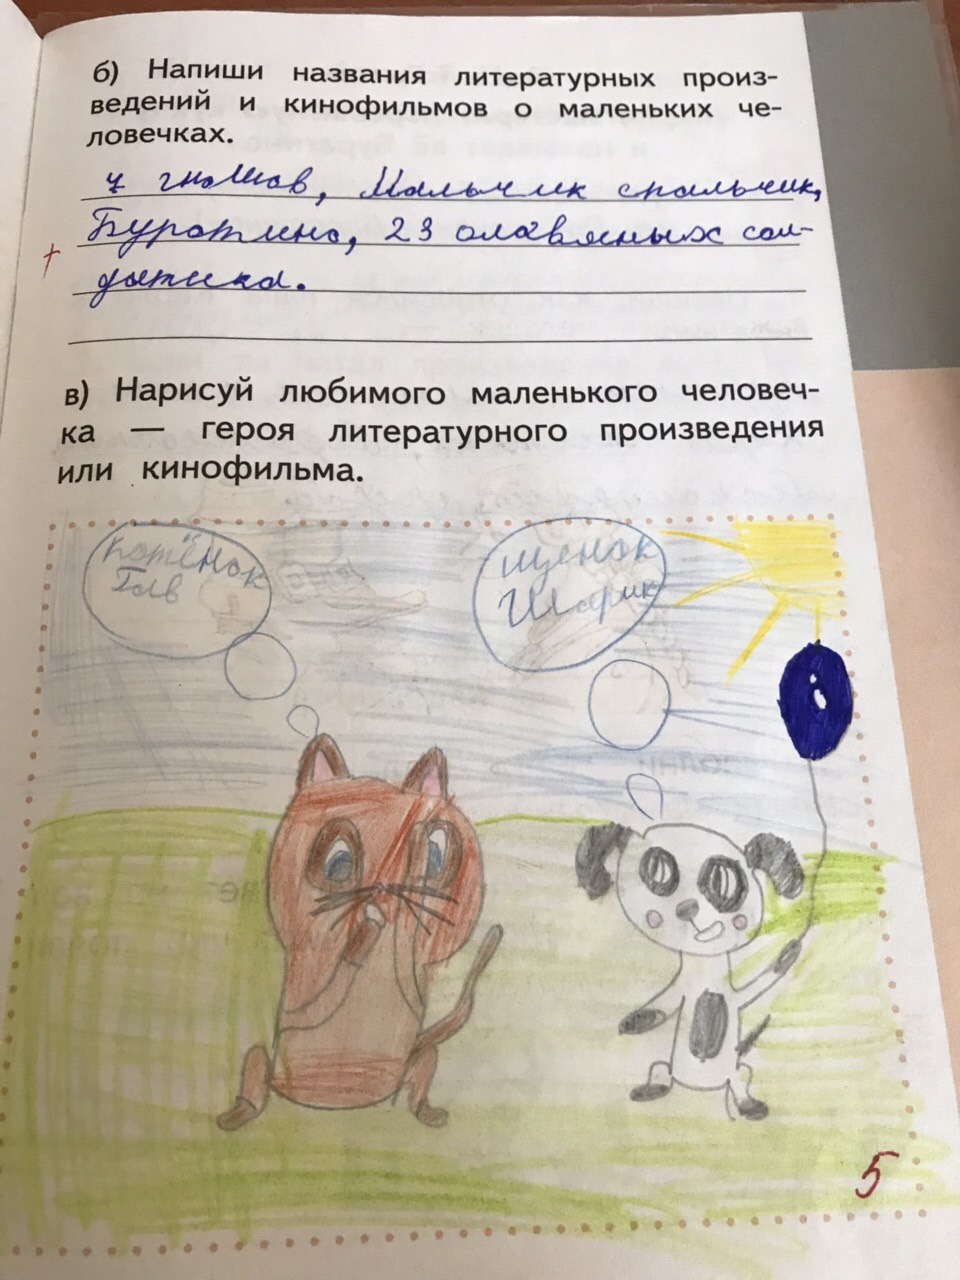 б) Напиши названия литературных произ-
ведений и кинофильмов о маленьких че-
ловечках.
7 гномов, Мальчик спальчик,
Буротино, 23 оловяных сол-
датика.
в) Нарисуй любимого маленького человеч-
ка — героя литературного произведения
или кинофильма.
Котёнок
Гав
щенок
Шарик
5